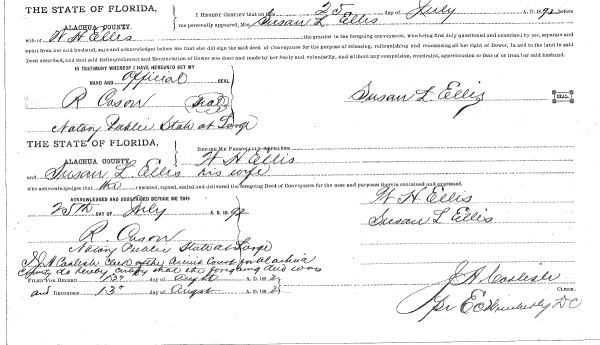 THE STATE OF FLORIDA,
ALACHUA COUNTY.
I HEREBY CERTIFY that on the 25 day of July A. D. 1892 before
me personally appeared, Mrs Susan L Ellis
wife of W H Ellis the grantor in the foregoing conveyance, who being first duly questioned and examined by me, separate and
apart from her said husband, says and acknowledges before me that she did sign the said deed of Conveyance for the purpose of releasing, relinquishing and renouncing all her right of Dower, in and to the land in said
Deed described, and that said Relinquishment and Renunciation of Dower was done and made by her freely and voluntarily, and without any compulsion, constraint, apprehension or fear of or from her said husband.
IN TESTIMONY WHEREOF I HAVE HEREUNTO SET MY
HAND AND official SEAL
R Cason (Seal)
Susan L Ellis SEAL.
Notary Public State at Large
THE STATE OF FLORIDA,
ALACHUA COUNTY.
BEFORE ME PERSONALLY APPEARED
W H Ellis
and Susan L. Ellis his wife
who acknowledges that executed, signed, sealed and delivered the foregoing Deed of Conveyance for the uses and purposes therein contained and expressed.
ACKNOWLEDGED AND SUBSCRIBED BEFORE ME THIS
25th DAY OF July A. D. 1892
W H Ellis
Susan L Ellis
R Cason
Notary Public State at Large
I J A Carlisle Clerk of the Circuit Court for Alachua
County do hereby certify that the foregoing deed was
FILED FOR RECORD 13" day of August A. D. 1892
and RECORDED 13" day of August 1892
J A Carlisle
CLERK.
Pr E C Wimberly DC